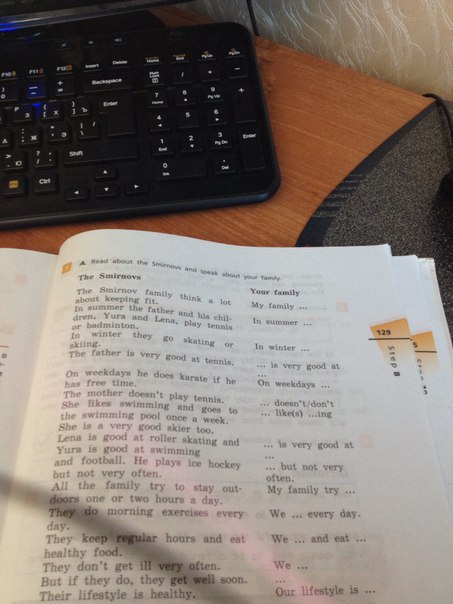 F10
F11
F12
Insert
Delete
Home
End
PgUp
PgDn
Backspace
Num Lock
/
*
-
Enter
7 Home
8
9 PgUp
+
4
5
6
Shift
1 End
2
3 PgDn
Enter
Ctrl
0 Ins
. Del
1 A. Read about the Smirnovs and speak about your family.
The Smirnovs
The Smirnov family think a lot
about keeping fit.
In summer the father and his chil-
dren, Yura and Lena, play tennis
or badminton.
In winter they go skating or
skiing.
The father is very good at tennis.
On weekdays he does karate if he
has free time.
The mother doesn't play tennis.
She likes swimming and goes to
the swimming pool once a week.
She is a very good skier too.
Lena is good at roller skating and
Yura is good at swimming
and football. He plays ice hockey
but not very often.
All the family try to stay out-
doors one or two hours a day.
They do morning exercises every
day.
They keep regular hours and eat
healthy food.
They don't get ill very often.
But if they do, they get well soon.
Their lifestyle is healthy.
Your family
My family ...
In summer ...
In winter ...
... is very good at
...
On weekdays ...
... doesn't/don't
... like(s) ...ing
... is very good at
...
... but not very
often.
My family try ...
We ... every day.
We ... and eat ...
We ...
...
Our lifestyle is ...
129
Step 8